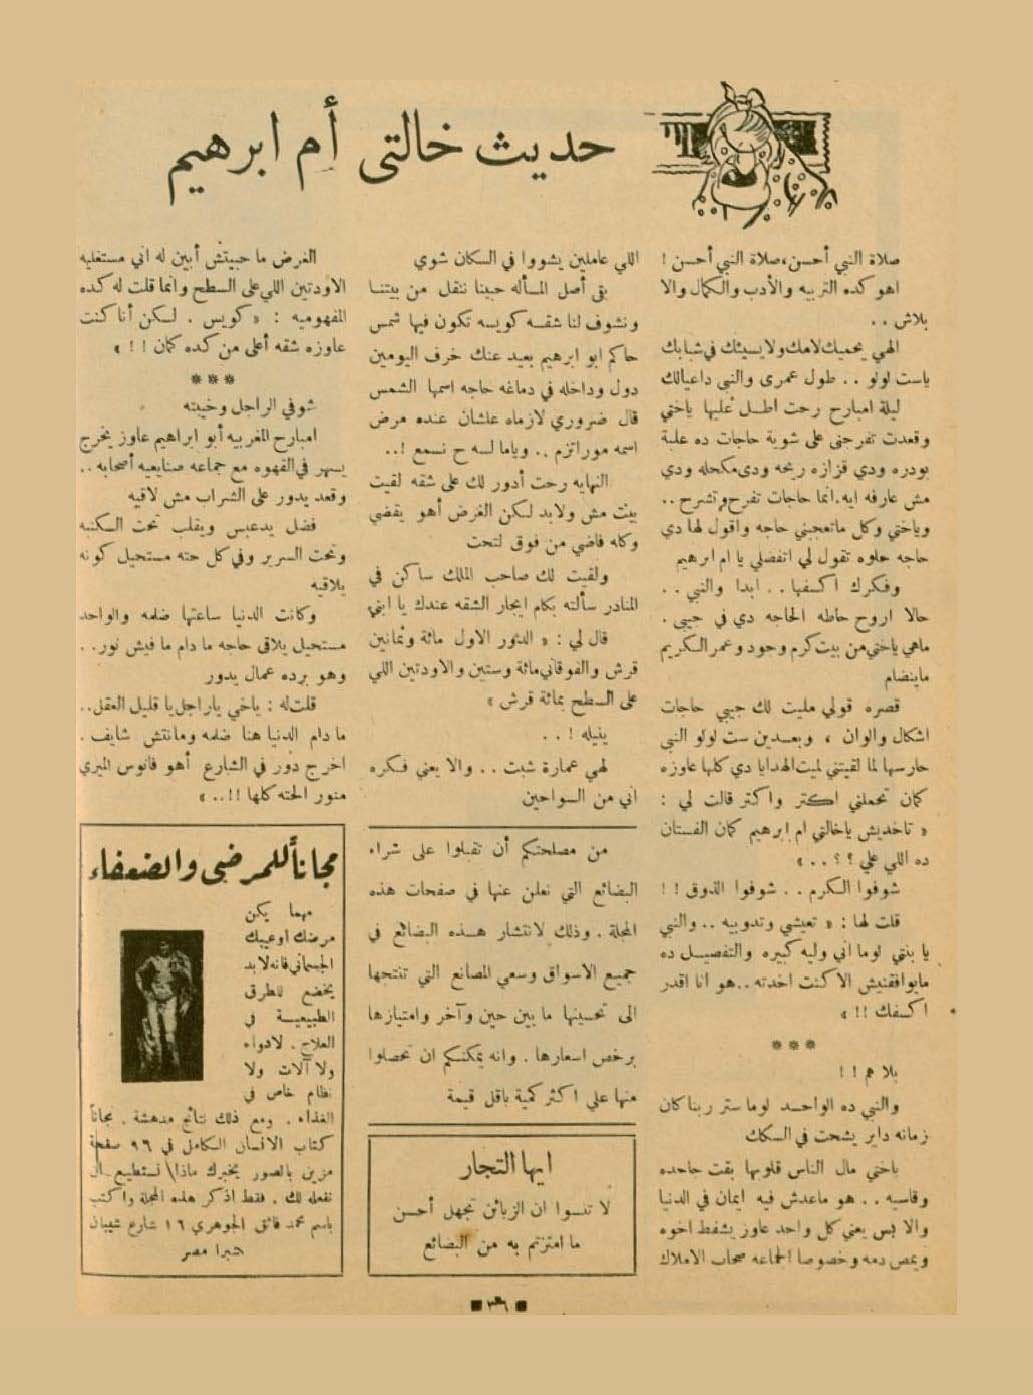 حديث خالتي أم ابرهيم
صلاة النبي أحسن، صلاة النبي أحسن !
اهو كده التربيه والأدب والكمال والا
بلاش . .
الهي يحميك لامك ولا يسيئك في شبابك
ياست لولو . . طول عمرى والنبي داعيالك
ليلة امبارح رحت اطل عليها ياختي
وقعدت تفرجنى على شوية حاجات ده علبة
بودره ودي قزازه ريحه ودى مكحله ودي
مش عارفه ايه، انما حاجات تفرح وتشرح . .
وياختي وكل ماتعجبني حاجه واقول لها دي
حاجه حلوه تقول لي اتفضلي يا ام ابرهيم
وفكرك اكسفها . . ابدا والنبي . .
حالا اروح حاطه الحاجه دي في جيبى .
ماهي ياختي من بيت كرم وجود وعمر الكريم
ماينضام
قصره قولي مليت لك جيبي حاجات
اشكال والوان ، وبعدين ست لولو النبي
حارسها لما لقيتني لميت الهدايا دي كلها عاوزه
كمان تحملني اكتر واكتر قالت لي :
« تاخديش ياخالتي ام ابرهيم كمان الفستان
ده اللي علي ؟ ؟ . . »
شوفوا الكرم . . شوفوا الذوق ! !
قلت لها : « تعيشي وتدوبيه . . والنبي
يا بنتي لوما اني وليه كبيره والتفصيل ده
مايوافقنيش الا كنت اخدته . . هو انا اقدر
اكسفك !! »
***
بلا هم ! !
والنبي ده الواحد لوما ستر ربنا كان
زمانه داير يشحت في السكك
ياختي مال الناس قلوبها بقت جاحده
وقاسيه . . هو ماعدش فيه ايمان في الدنيا
والا بس يعني كل واحد عاوز يشفط اخوه
ويمص دمه وخصوصا الجماعه صحاب الاملاك
اللي عاملين يشووا في السكان شوي
بقى أصل المسأله حبينا ننقل من بيتنا
ونشوف لنا شقه كويسه تكون فيها شمس
حاكم ابو ابرهيم بعيد عنك خرف اليومين
دول وداخله في دماغه حاجه اسمها الشمس
قال ضروري لازماه علشان عنده مرض
اسمه موراتزم . . وياما لسه ح نسمع ! . .
النهايه رحت أدور لك على شقه لقيت
بيت مش ولابد لكن الغرض أهو يقضي
وكله فاضي من فوق لتحت
ولقيت لك صاحب الملك ساكن في
المنادر سألته بكام ايجار الشقه عندك يا ابني
قال لي : « الدور الاول مائة وثمانين
قرش والفوقاني مائة وستين والاودتين اللي
على السطح بمائة قرش »
ينيله ! . .
لهي عمارة شبت . . والا يعني فكره
اني من السواحين
من مصلحتكم أن تقبلوا على شراء
البضائع التي نعلن عنها في صفحات هذه
المجلة . وذلك لانتشار هذه البضائع في
جميع الاسواق وسعي المصانع التي تنتجها
الى تحسينها ما بين حين وآخر وامتيازها
برخص اسعارها . وانه يمكنكم ان تحصلوا
منها على اكثر كمية باقل قيمة
ايها التجار
لا تنسوا ان الزبائن تجهل أحسن
ما امتزتم به من البضائع
الغرض ما حبيتش أبين له اني مستغليه
الاودتين اللي على السطح وانما قلت له كده
المفهوميه : « كويس . لكن أنا كنت
عاوزه شقه أعلى من كده كمان ! ! »
***
شوفي الراجل وخيبته
امبارح المغربيه أبو ابراهيم عاوز يخرج
يسهر في القهوه مع جماعه صنايعيه أصحابه . .
وقعد يدور على الشراب مش لاقيه
فضل يدعبس ويقلب تحت الكنبه
وتحت السرير وفي كل حته مستحيل كونه
يلاقيه
وكانت الدنيا ساعتها ضلمه والواحد
مستحيل يلاقى حاجه ما دام ما فيش نور . .
وهو برده عمال يدور
قلت له : ياخي ياراجل يا قليل العقل . .
ما دام الدنيا هنا ضلمه ومانتش شايف .
اخرج دور في الشارع أهو فانوس الميري
منور الحته كلها !! . . »
مجاناً للمرضى والضعفاء
مهما يكن
مرضك او عيبك
الجسماني فانه لابد
يخضع للطرق
الطبيعية في
العلاج . لا دواء
ولا آلات ولا
نظام خاص في
الغذاء . ومع ذلك نتائج مدهشة . مجاناً
كتاب الانسان الكامل في ٩٦ صفحة
مزين بالصور يخبرك ماذا نستطيع ان
نفعله لك . فقط اذكر هذه المجلة واكتب
باسم محمد فائق الجوهري ١٦ شارع شيبان
شبرا مصر
٣٦